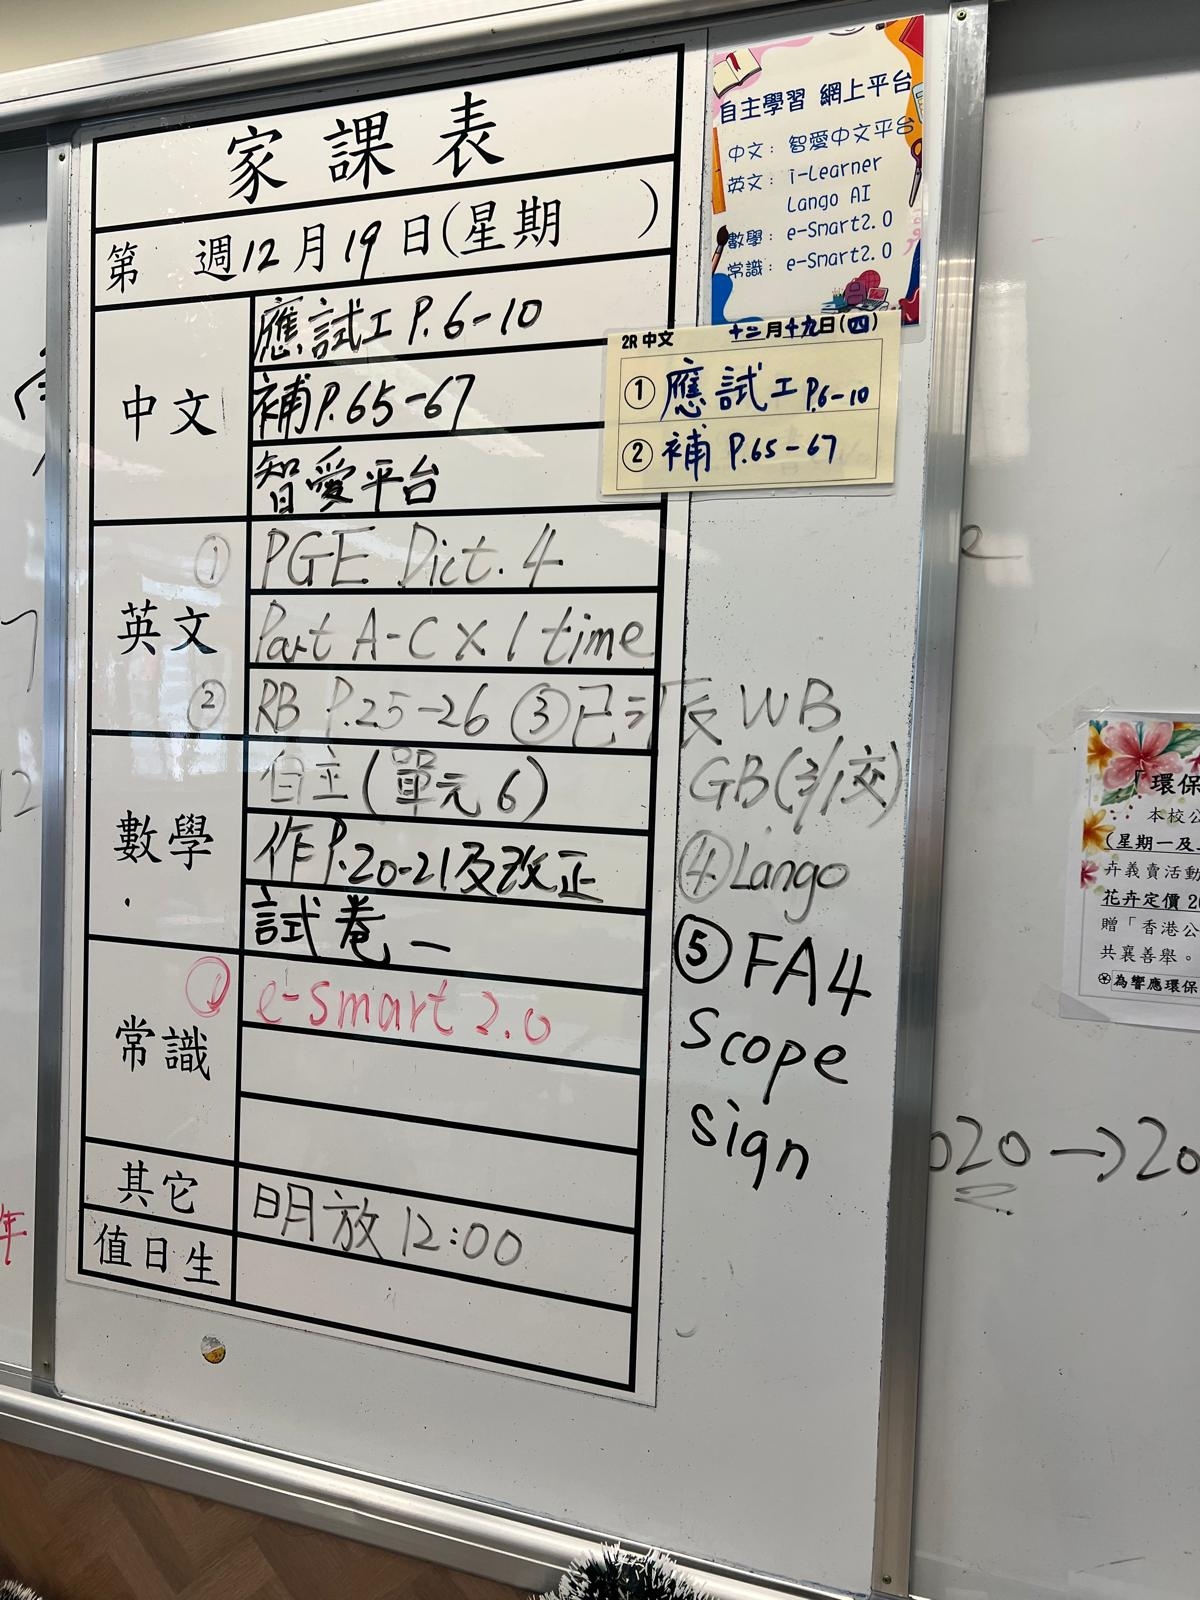 家課表
第 週12月19日(星期 )
中文
應試工 P.6-10
補P.65-67
智愛平台
英文
① PGE Dict. 4
Part A-C × 1 time
② RB P.25-26 ③已訂反 WB
GB(3/1交)
④Lango
⑤FA4
scope
sign
數學
自主(單元6)
作P.20-21及改正
試卷一
常識
① e-smart 2.0
其它
明放12:00
值日生
自主學習 網上平台
中文： 智愛中文平台
英文： i-Learner
Lango AI
數學： e-Smart2.0
常識： e-Smart2.0
2R 中文 十二月十九日(四)
① 應試工 P.6-10
② 補 P.65-67
「環保
本校公
(星期一及
卉義賣活動
花卉定價 2
贈「香港公
共襄善舉。
為響應環保
020→20
年